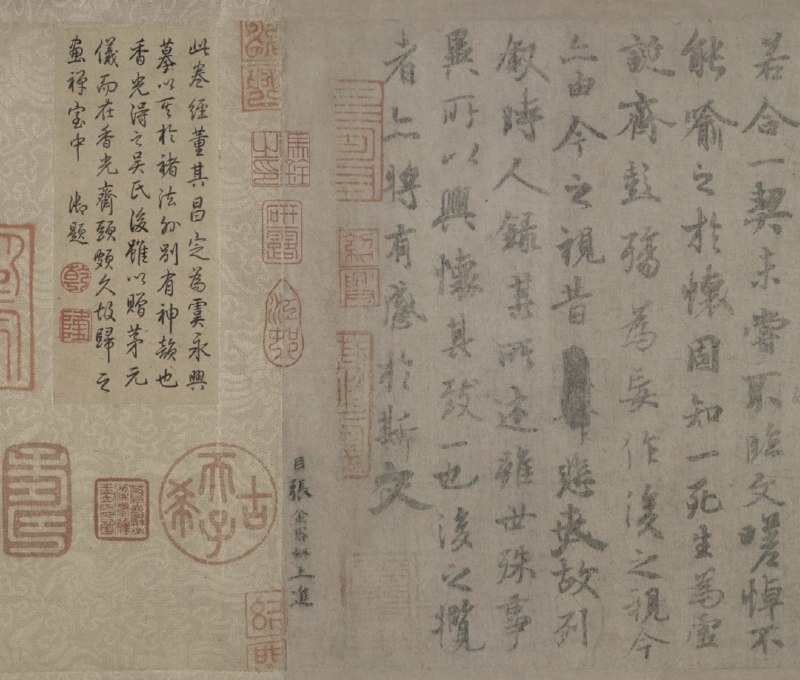 若合一契未嘗不臨文嗟悼不
能喻之於懷固知一死生為虛
誕齊彭殤為妄作後之視今
亦由今之視昔悲夫故列
叙時人錄其所述雖世殊事
異所以興懷其致一也後之攬
者亦將有感於斯文
臣張金界奴上進
此卷經董其昌定為虞永興
摹以其於褚法外別有神韻也
香光得之吳氏後雖以贈茅元
儀而在香光齋頭頗久故歸之
畫禪室中 御題
乾
隆
古希天子
紹興